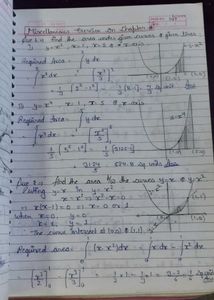 Miscellaneous Exercise on Chapter 8
Que 1:- Find the area under given curves & given lines
1) y=x², x=1, x=2 & x-axis
Required Area = ∫ y dx
∫ x² dx = [x³/3]
= 1/3 [2³-1³] = 1/3 [8-1] = 7/3 sq unit Ans
2) y=x⁴, x=1, x=5 & x-axis
Required Area = ∫ y dx
∫ x⁴ dx = [x⁵/5]
= 1/5 [5⁵-1⁵] = 1/5 [3125-1]
3124/5 = 624.8 sq unit Ans
Que 2:- Find the area b/w the curves y=x & y=x²
Putting y=x in y=x²
x=x² ⇒ x²-x=0
⇒ x(x-1)=0 ⇒ x=0 or 1
when x=0, y=0
x=1, y=1
The curve intersect at (0,0) & (1,1)
Required area = ∫(x-x²)dx = ∫x dx - ∫x² dx
[x²/2] - [x³/3] = 1/2 × 1 - 1/3 × 1 = 3-2/6 = 1/6 sq unit